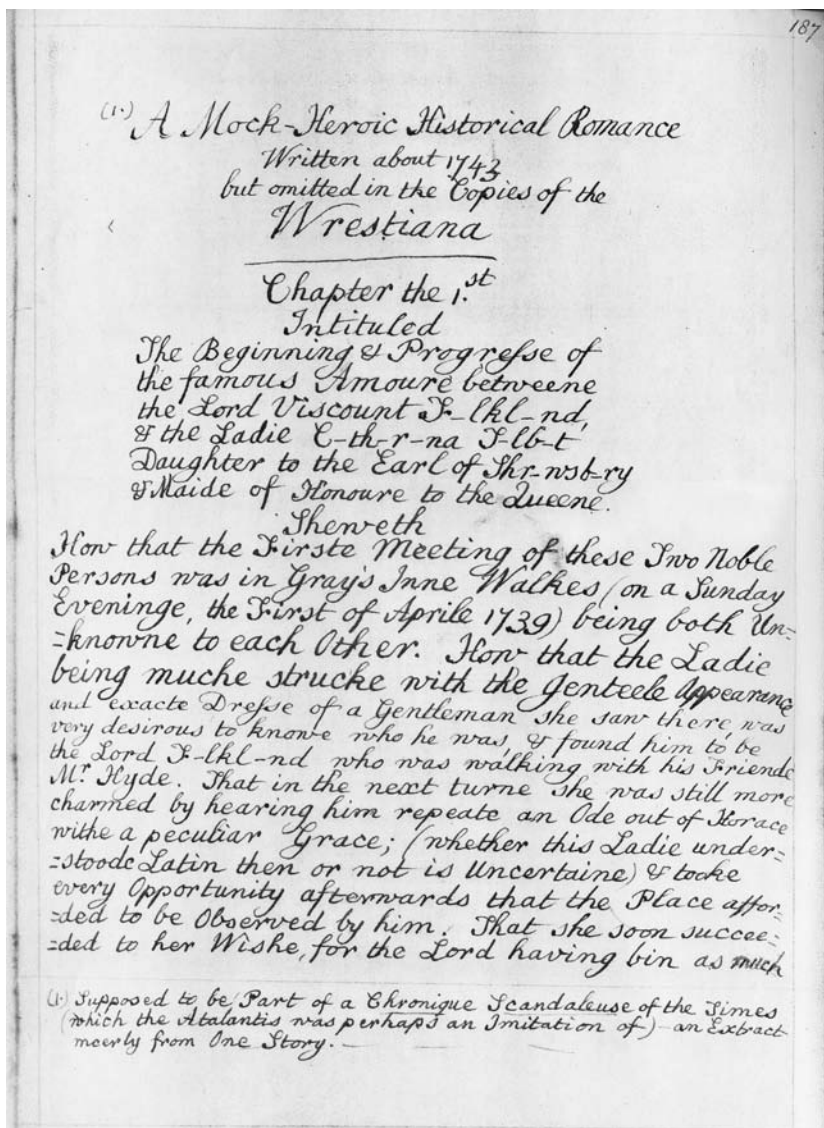 187
(1.) A Mock-Heroic Historical Romance
Written about 1743
but omitted in the Copies of the
Wrestiana
Chapter the 1.st
Intituled
The Beginning & Progresse of
the famous Amoure betweene
the Lord Viscount F-lkl-nd,
& the Ladie C-th-r-na T-lb-t
Daughter to the Earl of Shr-wsb-ry
& Maide of Honoure to the Queene.
Sheweth
How that the Firste Meeting of these Two Noble
Persons was in Gray's Inne Walkes (on a Sunday
Eveninge, the First of Aprile 1739) being both Un=
=knowne to each Other. How that the Ladie
being muche strucke with the Genteele Appearance
and exacte Dresse of a Gentleman she saw there, was
very desirous to knowe who he was, & found him to be
the Lord F-lkl-nd who was walking with his Friende
Mr. Hyde. That in the next turne she was still more
charmed by hearing him repeate an Ode out of Horace
withe a peculiar Grace; (whether this Ladie under=
=stoode Latin then or not is Uncertaine) & tooke
every Opportunity afterwards that the Place affor=
=ded to be Observed by him. That she soon succee=
=ded to her Wishe, for the Lord having bin as much
(1.) Supposed to be Part of a Chronique Scandaleuse of the Times
(which the Atalantis was perhaps an Imitation of) – an Extract
meerly from One Story. –